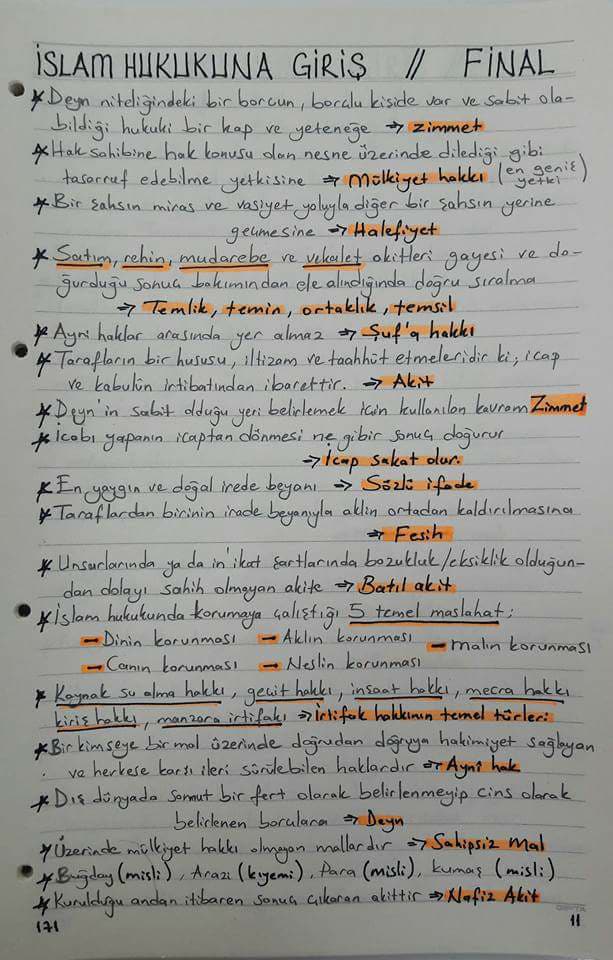 İSLAM HUKUKUNA GİRİŞ // FİNAL
* Deyn niteliğindeki bir borcun, borçlu kişide var ve sabit ola-
bildiği hukuki bir kap ve yeteneğe ⇒ zimmet
* Hak sahibine hak konusu olan nesne üzerinde dilediği gibi
tasarruf edebilme yetkisine ⇒ Mülkiyet hakkı (en geniş yetki)
* Bir şahsın miras ve vasiyet yoluyla diğer bir şahsın yerine
geçmesine ⇒ Halefiyet
* Satım, rehin, mudarebe ve vekalet akitleri gayesi ve do-
ğurduğu sonuç bakımından ele alındığında doğru sıralma
⇒ Temlik, temin, ortaklık, temsil
* Ayni haklar arasında yer almaz ⇒ Şuf'a hakkı
* Tarafların bir hususu, iltizam ve taahhüt etmeleridir ki; icap
ve kabulün irtibatından ibarettir. ⇒ Akit
* Deyn'in sabit olduğu yeri belirlemek için kullanılan kavram Zimmet
* İcabı yapanın icaptan dönmesi ne gibir sonuç doğurur
⇒ İcap sakat olur.
* En yaygın ve doğal irede beyanı ⇒ Sözlü ifade
* Taraflardan birinin irade beyanıyla aklin ortadan kaldırılmasına
⇒ Fesih
* Unsurlarında ya da in'ikat şartlarında bozukluk/eksiklik olduğun-
dan dolayı sahih olmayan akite ⇒ Batıl akit
* İslam hukukunda korumaya çalıştığı 5 temel maslahat;
- Dinin korunması - Aklın korunması - Malın korunması
- Canın korunması - Neslin korunması
* Kaynak su alma hakkı, geçit hakkı, insaat hakkı, mecra hakkı
kiriş hakkı, manzara irtifakı ⇒ İrtifak hakkının temel türleri
* Bir kimseye bir mal üzerinde doğrudan doğruya hakimiyet sağlayan
ve herkese karşı ileri sürülebilen haklardır ⇒ Ayni hak
* Dış dünyada somut bir fert olarak belirlenmeyip cins olarak
belirlenen borçlara ⇒ Deyn
* Üzerinde mülkiyet hakkı olmayan mallardır ⇒ Sahipsiz mal
* Buğday (misli), Arazi (kıyemi), Para (misli), kumaş (misli)
* Kurulduğu andan itibaren sonuç çıkaran akittir ⇒ Nafiz Akit
171 11